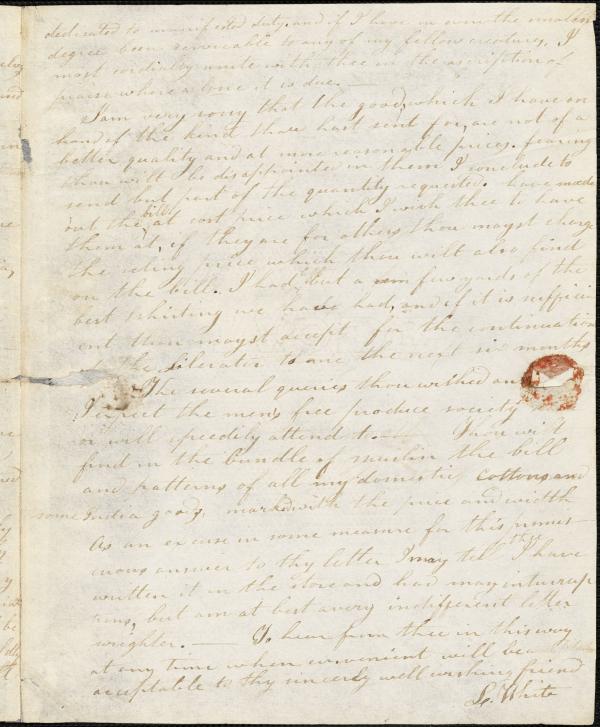 dedicated to manifested duty. and if I have in even the smallest
degree been serviceable to any of my fellow creatures, I
most cordially unite with thee in the ascription of
praise where alone it is due.
I am very sorry that the goods which I have on
hand of the kind thou hast sent for, are not of a
better quality and at more reasonable prices. fearing
thou wilt be disappointed in them I conclude to
send but part of the quantity requested. have made
out the bill at cost price which I wish thee to have
them at, if they are for others thou mayst charge
the selling price which thou wilt also find
on the bill. I had but a few yards of the
best shirting we have had, and if it is suffici
ent thou mayst accept for the continuation
of the Liberator to me the next six months
The several queries thou wished an
I meet the mens free produce society
or will speedily attend to. Thou wilt
find in the bundle of muslin the bill
and patterns of all my domestic cottons and
some India goods marked with the price and width
As an excuse in some measure for this
answer to thy letter I may tell thee I have
written it in the store and had many interrup
tions, but am at best a very indifferent letter
wrighter. To hear from thee in this way
at any time when convenient will be
acceptable to thy sincerely well wishing friend
L. White